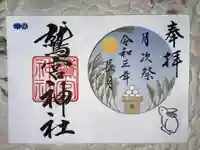 奉拝
月次祭
令和三年
長月
鷲宮神社